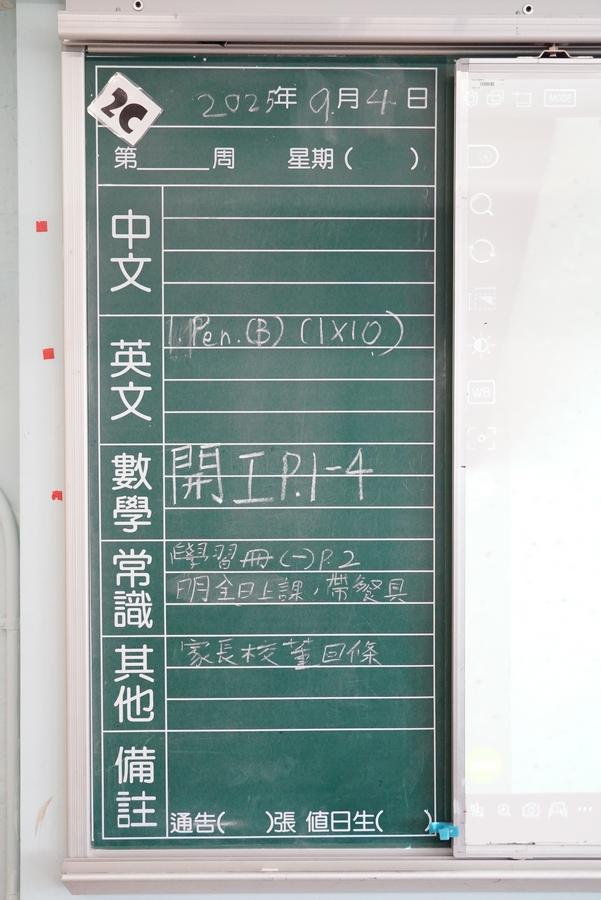 2C
2025年 9月 4日
第____周 星期( )
中文
英文
1. Pen.(B) (1X10)
數學
開工P.1-4
常識
學習冊(一)P.2
明全日上課,帶餐具
其他
家長校董回條
備註
通告( )張 值日生( )
MODE
WB